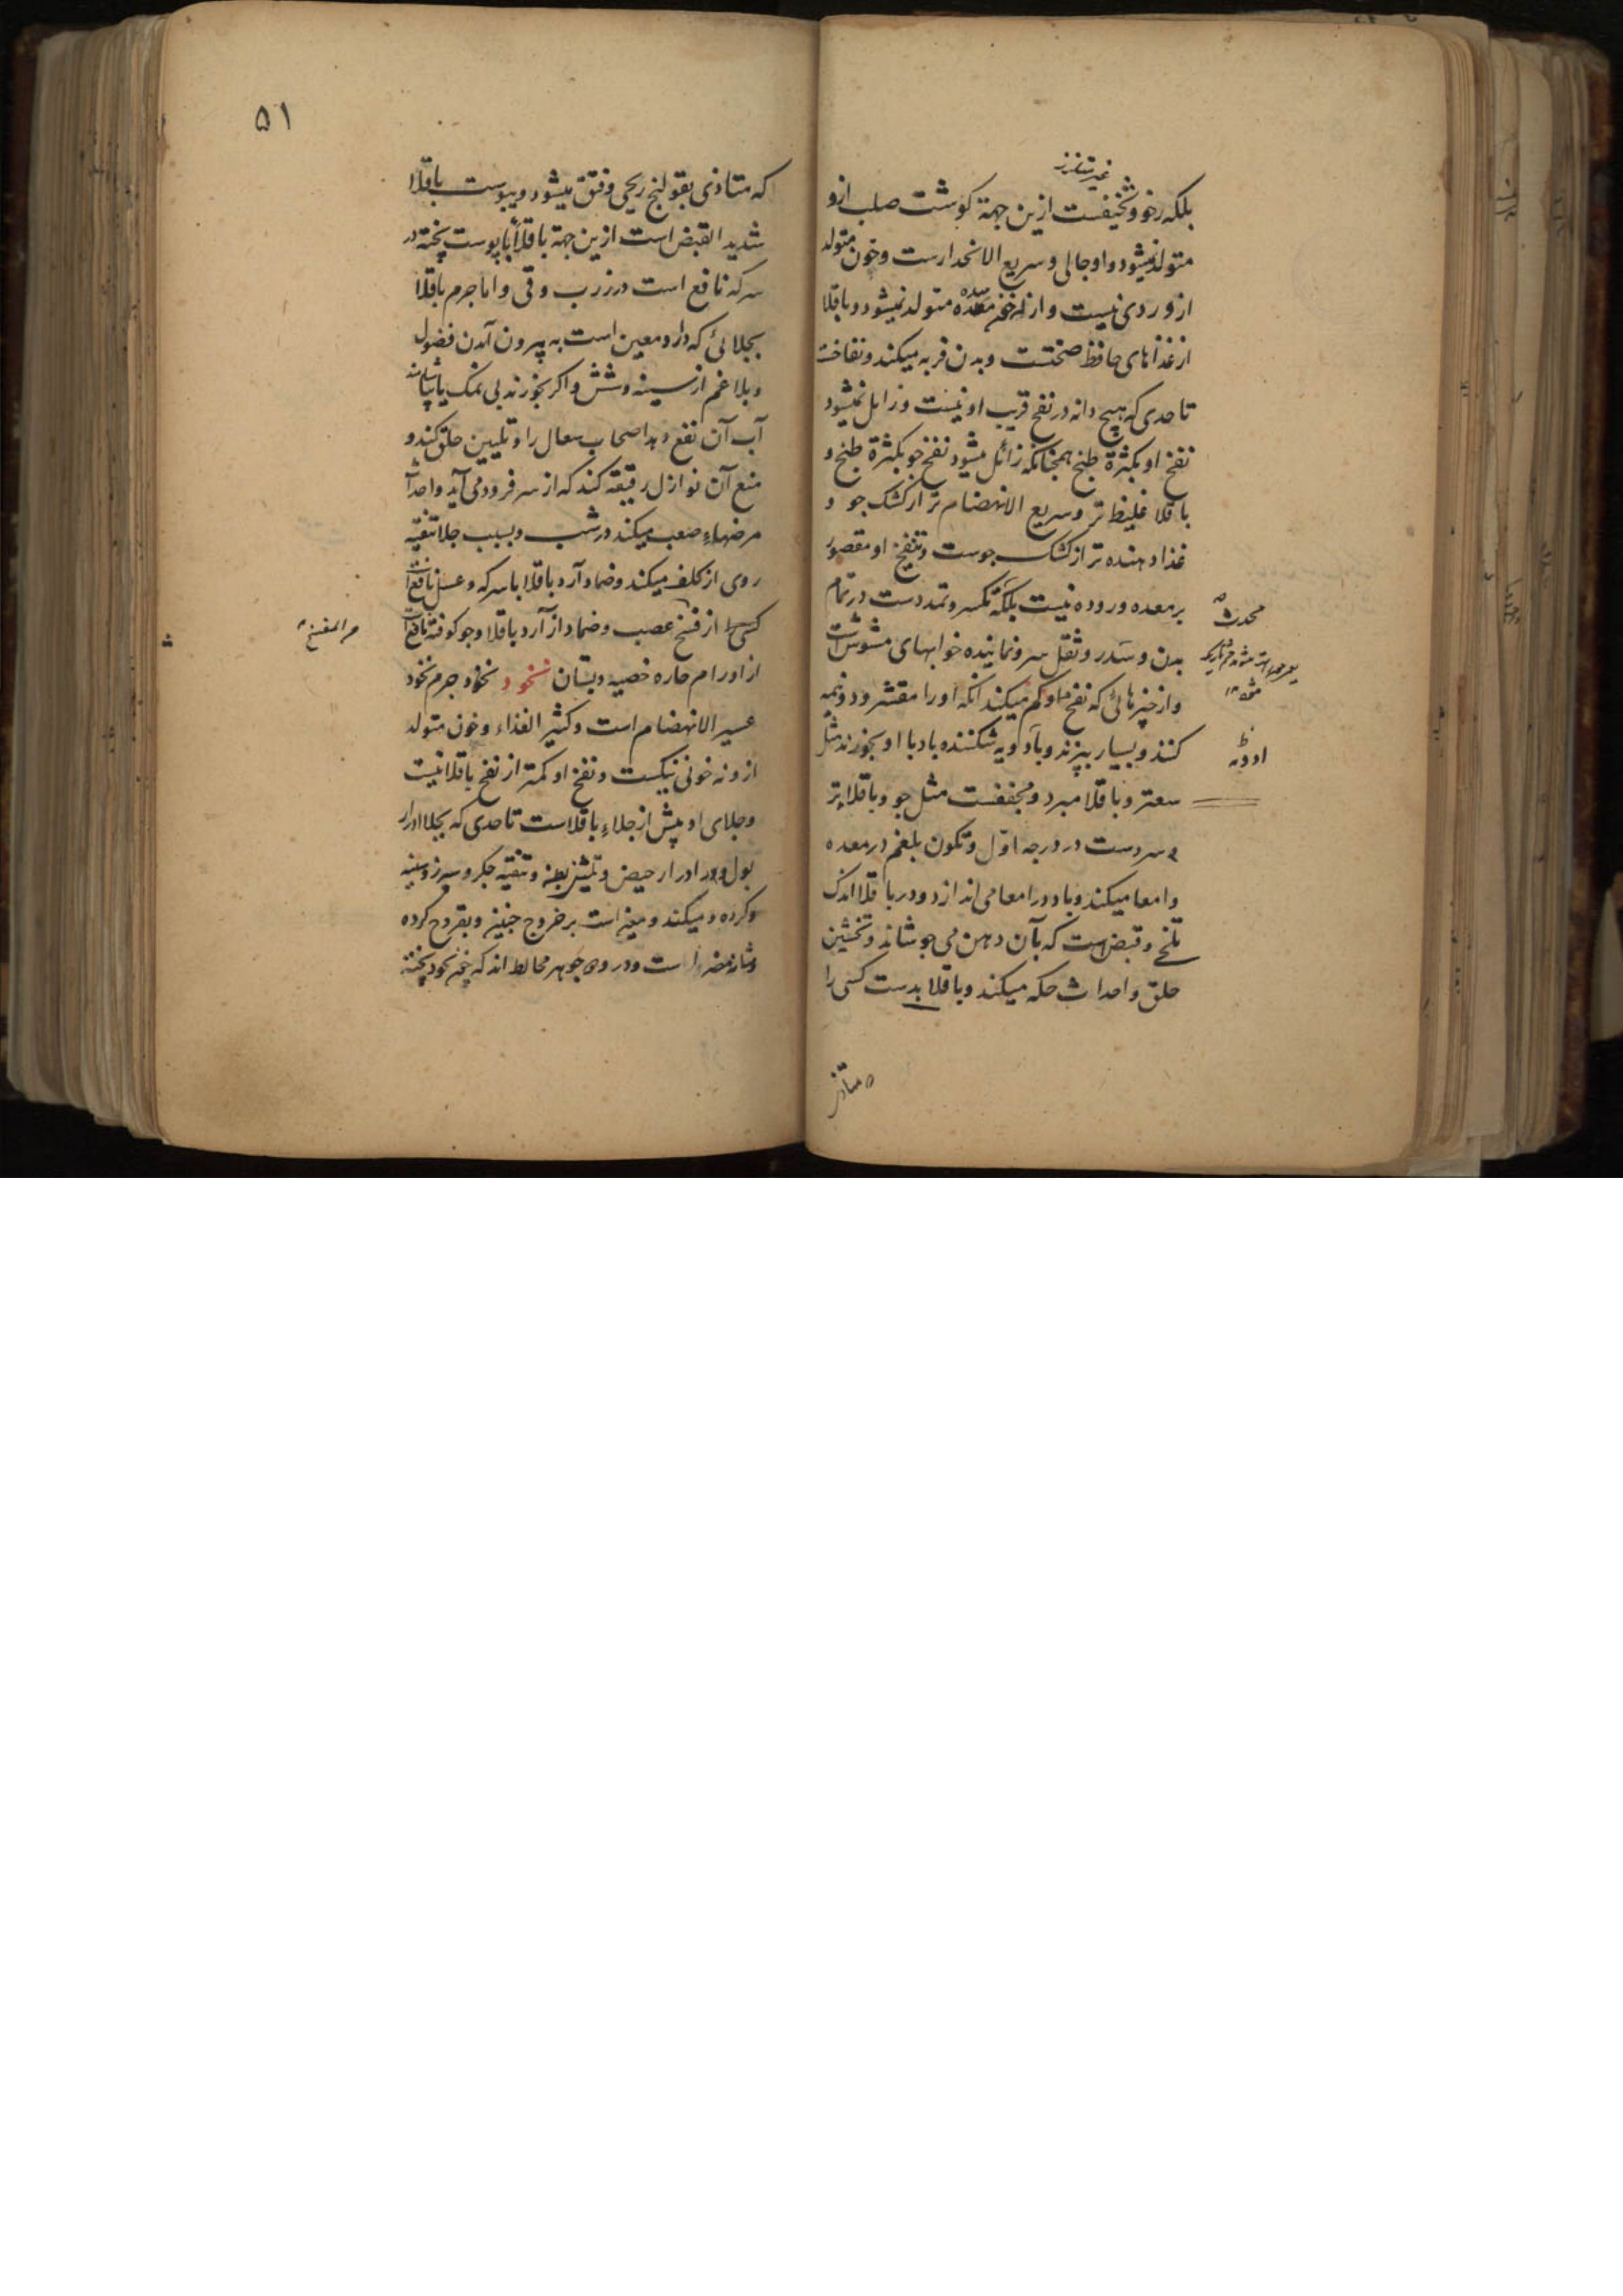 غیر متلزز
بلکه رخو و سخیفست ازین جهة کوشت صلب ازو
متولد نمیشود و او جالی و سریع الانحدارست و خون متولد
ازو ردی نیست و از او سده متولد نمیشود و باقلا
از غذاهای حافظ صحتست و بدن فربه میکند و نفاخت
تا حدی که هیچ دانه در نفخ قریب او نیست و زایل نمیشود
نفخ او بکثرة طبخ همچنانکه زائل میشود نفخ جو بکثرة طبخ و
باقلا غلیظ تر و سریع الانهضام تر از کشک جو و
غذا دهنده تر از کشک جوست و تنفیخ او مقصور
بر معده و روده نیست بلکه تکسر و تمددست در تمام
بدن و سدر و ثقل سر و نماینده خوابهای مشوش است
و از چیزهائی که نفخ او کم میکند آنکه او را مقشر و دو نیمه
کنند و بسیار بپزند و با ادویه شکننده باد با او بخورند مثل
سعتر و باقلا مبرد و مجففست مثل جو و باقلا تر
سردست در درجه اول و تکون بلغم در معده
و امعا میکند و باد در امعا می اندازد و در باقلا اندک
تلخی و قبض است که بآن دهن می جوشاند و تخشین
حلق و احداث حکه میکند و باقلا بدست کسی را
محدث
ادویه
متاذی
۵۱
که متاذی بقولنج ریحی و فتق میشود و پوست باقلا
شدید القبض است ازین جهة باقلا با پوست پخته در
سرکه نافع است در زرب و قی و اما جرم باقلا
بجلائی که دارد معین است به بیرون آمدن فضول
و بلاغم از سینه و شش و اکر بخورند بی نمک یا بیاشامند
آب آن نفع دهد اصحاب سعال را و تلیین حلق کند و
منع آن نوازل رقیقه کند که از سر فرود می آید و احداث
مرضهاء صعب میکند در شب و بسبب جلا تنقیه
روی از کلف میکند و ضماد آرد باقلا با سرکه و عسل نافع است
کسی را از فسخ عصب و ضماد از آرد باقلا و جو کوفته نافع است
از اورام حاره خصیه و پستان نخود نخود جرم نخود
عسیر الانهضام است و کثیر الغذاء و خون متولد
ازو نه خونی نیکست و نفخ او کمتر از نفخ باقلا نیست
و جلای او بیش از جلاء باقلاست تا حدی که بجلا ادرار
بول و ادرار حیض و تنقیه جکر و سپرز و سینه
و کرده میکند و معین است بر خروج جنین و بقروح کرده
و مثانه مضر است و در وی جوهر مخالط اند که چون نخود پخته